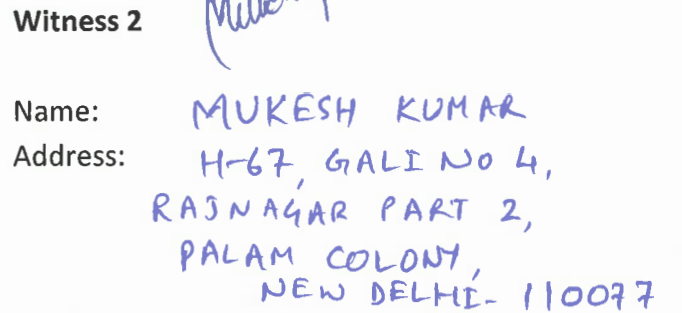 Witness 2
Name: MUKESH KUMAR
Address: H-67, GALI NO 4,
RAJNAGAR PART 2,
PALAM COLONY,
NEW DELHI- 110077